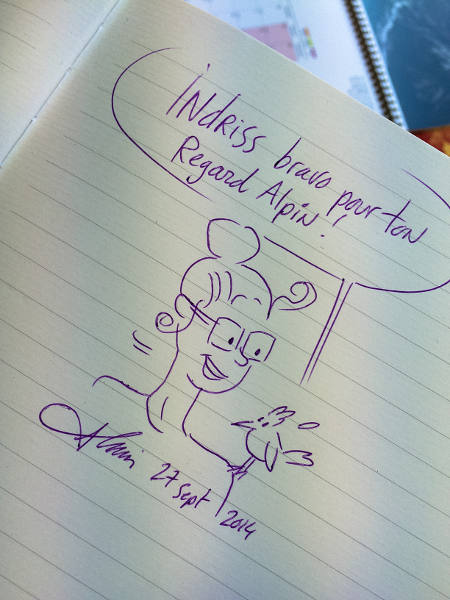 INdRiss bravo pour ton
Regard Alpin!
Alain 27 sept 2014